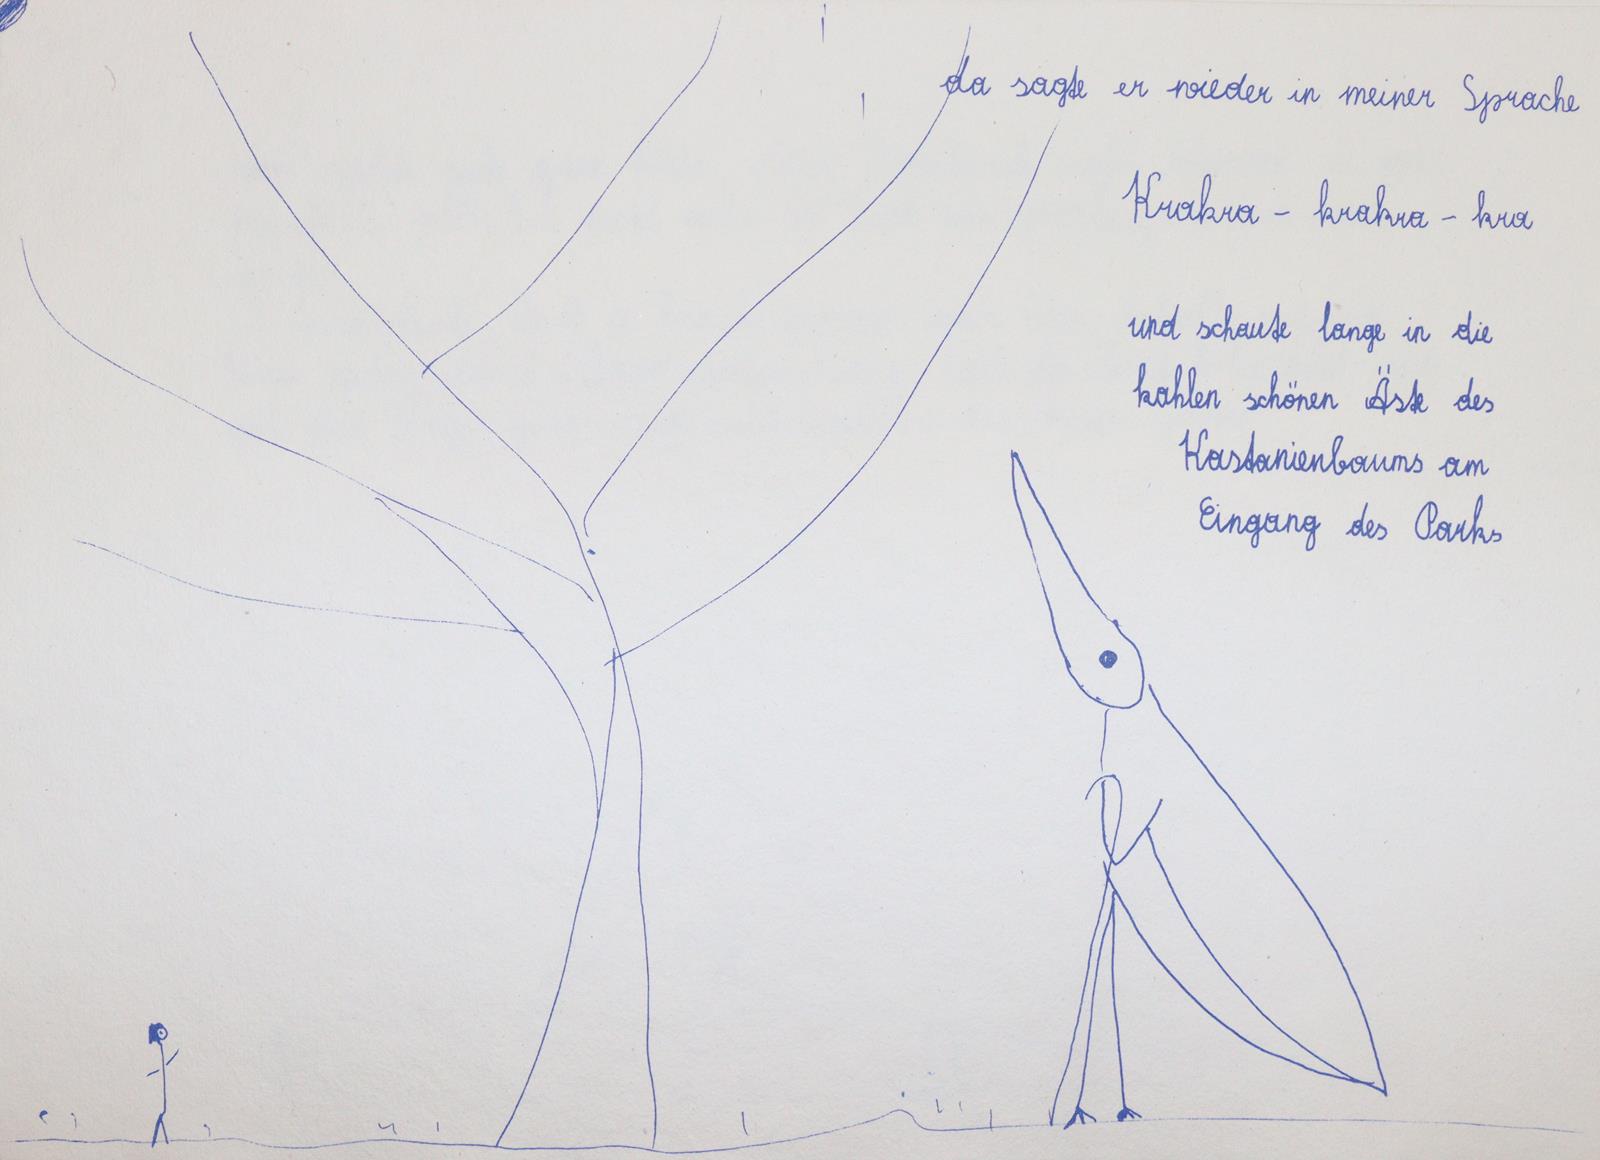 da sagte er wieder in meiner Sprache
Krakra - krakra - kra
und schaute lange in die
kahlen schönen Äste des
Kastanienbaums am
Eingang des Parks